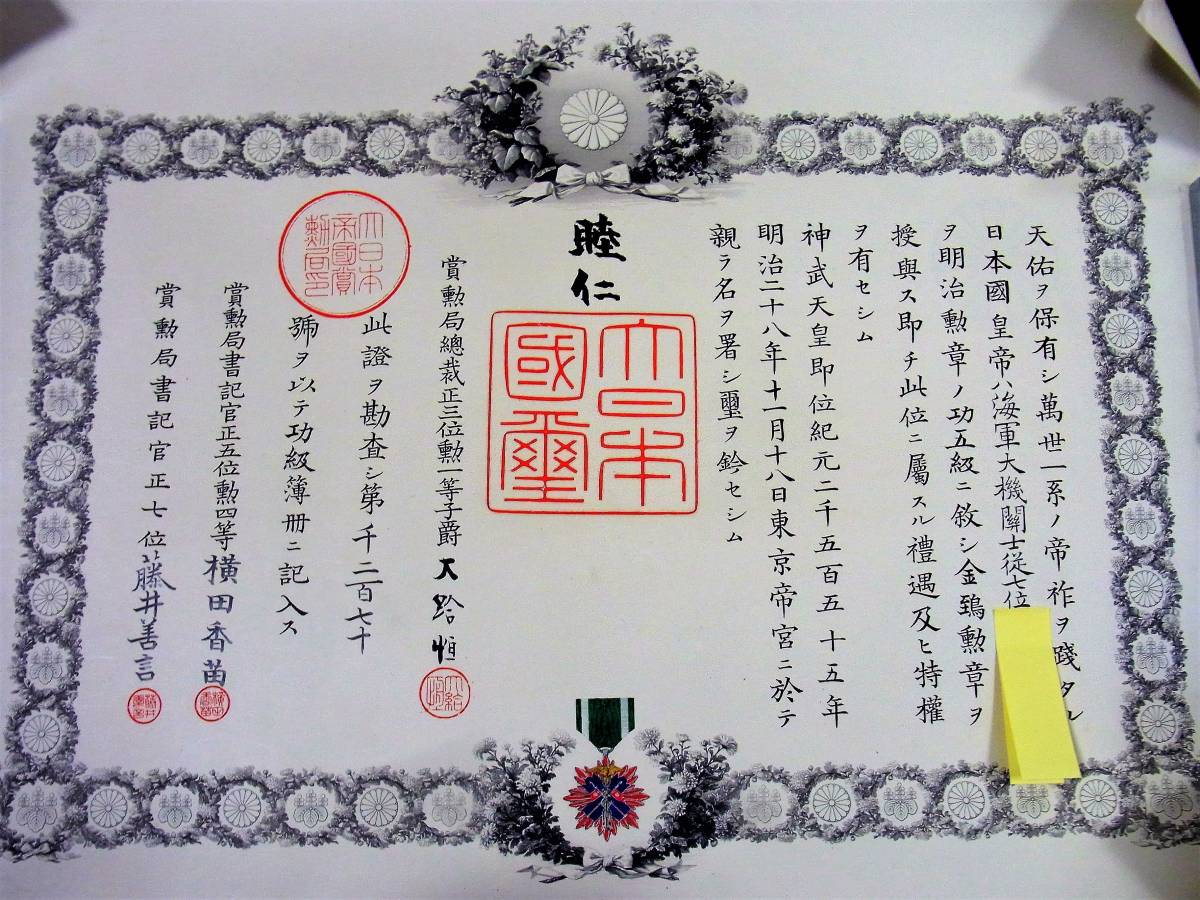 天佑ヲ保有シ萬世一系ノ帝祚ヲ踐タル
日本國皇帝ハ海軍大機關士從七位
ヲ明治勲章ノ功五級ニ敘シ金鵄勲章ヲ
授與ス即チ此位ニ屬スル禮遇及ヒ特權
ヲ有セシム
神武天皇即位紀元二千五百五十五年
明治二十八年十一月十八日東京帝宮ニ於テ
親ラ名ヲ署シ璽ヲ鈐セシム
睦仁
大日本
國璽
賞勲局總裁正三位勲一等子爵大給恒
大給恒
此證ヲ勘査シ第千二百七十
號ヲ以テ功級簿册ニ記入ス
大日本
帝國賞
勲局印
賞勲局書記官正五位勲四等横田香苗
賞勲局書記官正七位藤井善言